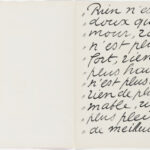 " Rien n'es
" doux que
" mour, rie
" n'est plu
" fort, rien
" plus hau
" n'est plus
" rien de pl
" mable, ri
" plus plei
" de meilleu